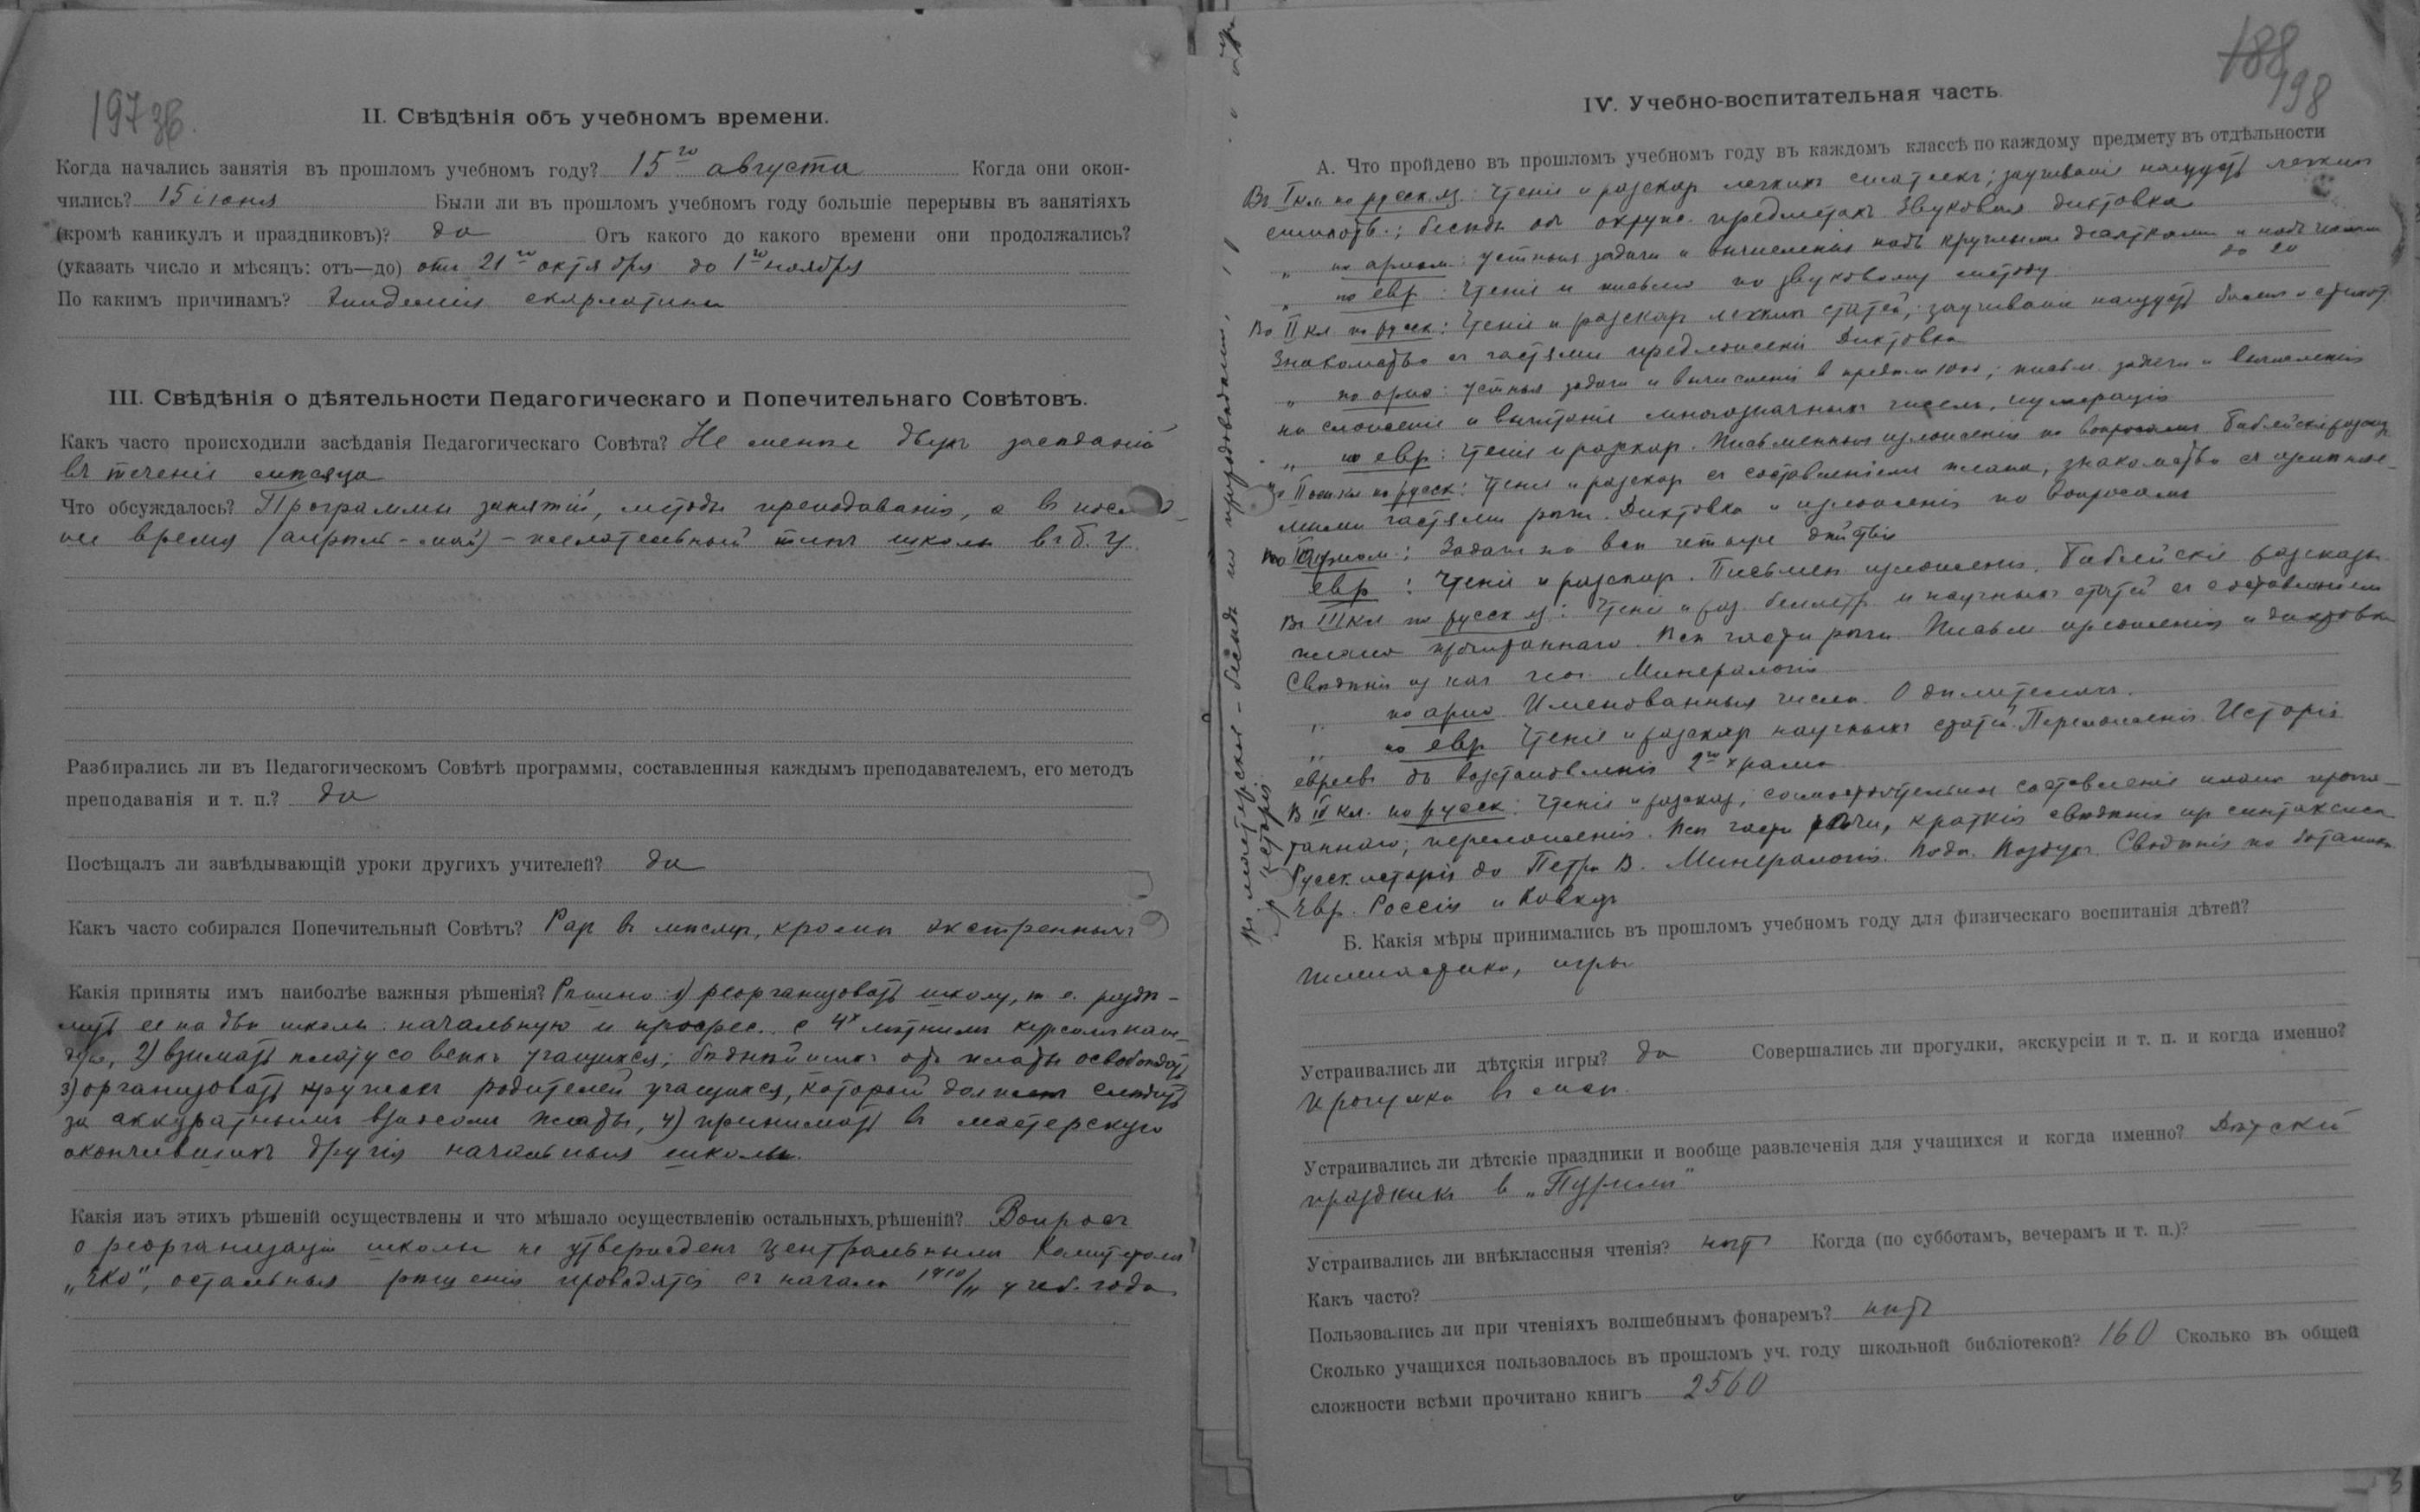 197 36.
II. Свѣдѣнія объ учебномъ времени.
Когда начались занятія въ прошломъ учебномъ году? 15го августа Когда они окон-
чились? 15 іюня Были ли въ прошломъ учебномъ году большіе перерывы въ занятіяхъ
(кромѣ каникулъ и праздниковъ)? да Отъ какого до какого времени они продолжались?
(указать число и мѣсяцъ: отъ—до) отъ 21го октября до 1го ноября
По какимъ причинамъ? Эпидемія скарлатины
III. Свѣдѣнія о дѣятельности Педагогическаго и Попечительнаго Совѣтовъ.
Какъ часто происходили засѣданія Педагогическаго Совѣта? Не менѣе двухъ засѣданій
въ теченіе мѣсяца
Что обсуждалось? Программы занятій, методы преподаванія, а въ послѣд-
нее время (апрѣль - май) - желательный типъ школы въ б. у.
Разбирались ли въ Педагогическомъ Совѣтѣ программы, составленныя каждымъ преподавателемъ, его методъ
преподаванія и т. п.? да
Посѣщалъ ли завѣдывающій уроки другихъ учителей? да
Какъ часто собирался Попечительный Совѣтъ? Разъ въ мѣсяцъ, кромѣ экстренныхъ
Какія приняты имъ наиболѣе важныя рѣшенія? Рѣшено: 1) реорганизовать школу, т. е. раздѣ-
лить ее на двѣ школы: начальную и професс. с 4х лѣтнимъ курсомъ каж-
дую, 2) взимать плату со всѣхъ учащихся; бѣднѣйшихъ отъ платы освобождать
3) организовать кружокъ родителей учащихся, который долженъ слѣдить
за аккуратнымъ взносомъ платы, 4) принимать въ мастерскую
окончившихъ другія начальныя школы.
Какія изъ этихъ рѣшеній осуществлены и что мѣшало осуществленію остальныхъ рѣшеній? Вопросъ
о реорганизаціи школы не утвержденъ Центральнымъ Комитетомъ
„ЕКО", остальныя рѣшенія проводятся съ начала 1910/11 учеб. года
188 198
IV. Учебно-воспитательная часть.
А. Что пройдено въ прошломъ учебномъ году въ каждомъ классѣ по каждому предмету въ отдѣльности
Въ I кл. по русск. яз. Чтеніе и разсказъ легкихъ статеекъ; заучиваніе наизусть легкихъ
стихотв.; бесѣды объ окруж. предметахъ. Звуковая диктовка
„ по ариѳм: устныя задачи и вычисленія надъ круглыми десятками и надъ числами
до 20
„ по евр: Чтеніе и письмо по звуковому методу
Во II кл по русск: Чтеніе и разсказъ легкихъ статей; заучиваніе наизусть басенъ и стихот.
Знакомство съ частями предложенія Диктовка
„ по ариѳ: устныя задачи и вычисленія в предѣлѣ 1000; письм. задачи и вычисленія
на сложеніе и вычитаніе многозначныхъ чиселъ, нумерація
„ по евр: Чтеніе и разсказъ. Письменныя изложенія по вопросамъ Библейскіе разсказы
кл по русск: Чтеніе и разсказъ съ составленіемъ плана; знакомство съ
частями рѣчи. Диктовка и изложенія по вопросамъ
ариѳм: Задачи на всѣ четыре дѣйствія
евр: Чтеніе и разсказъ. Письмен. изложенія. Библейскіе разсказы
Въ III кл по русск яз: Чтеніе и раз. беллетр. и научныхъ статей съ составленіемъ
плана прочитаннаго. Всѣ части рѣчи. Письм. изложенія и диктовка
Свѣдѣнія из Минералогія
„ по ариѳ Именованныя числа. О дѣлителяхъ.
„ по евр Чтеніе и разсказъ научныхъ статей. Переложенія. Исторія
евреевъ до возстановленія 2го храма
В IV кл. по русск: Чтеніе и разсказ; самостоятельное составленіе плана прочи-
таннаго; переложенія. Всѣ части рѣчи, краткія свѣдѣнія изъ синтаксиса
Русск. исторія до Петра В. Минералогія. Вода. Воздухъ. Свѣдѣнія по ботаникѣ
Евр. Россія и Кавказъ
Б. Какія мѣры принимались въ прошломъ учебномъ году для физическаго воспитанія дѣтей?
Гимнастика, игры
Устраивались ли дѣтскія игры? да Совершались ли прогулки, экскурсіи и т. п. и когда именно?
Прогулка въ маѣ.
Устраивались ли дѣтскіе праздники и вообще развлеченія для учащихся и когда именно? Дѣтскій
праздникъ в „Пуримъ"
Устраивались ли внѣклассныя чтенія? нѣтъ Когда (по субботамъ, вечерамъ и т. п.)?
Какъ часто?
Пользовались ли при чтеніяхъ волшебнымъ фонаремъ? нѣтъ
Сколько учащихся пользовалось въ прошломъ уч. году школьной библіотекой? 160 Сколько въ общей
сложности всѣми прочитано книгъ 2560